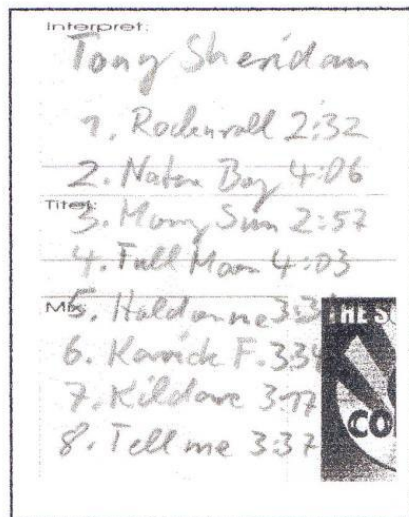 Interpret:
Tony Sheridan
1. Rockenroll 2:32
2. Nature Boy 4:06
Titel:
3. Morny Sun 2:57
4. Full Moon 4:03
Mix:
5. Haldanne
6. Karrick F. 3:34
7. Kildare 3:17
8. Tell me 3:37
THE S
CO